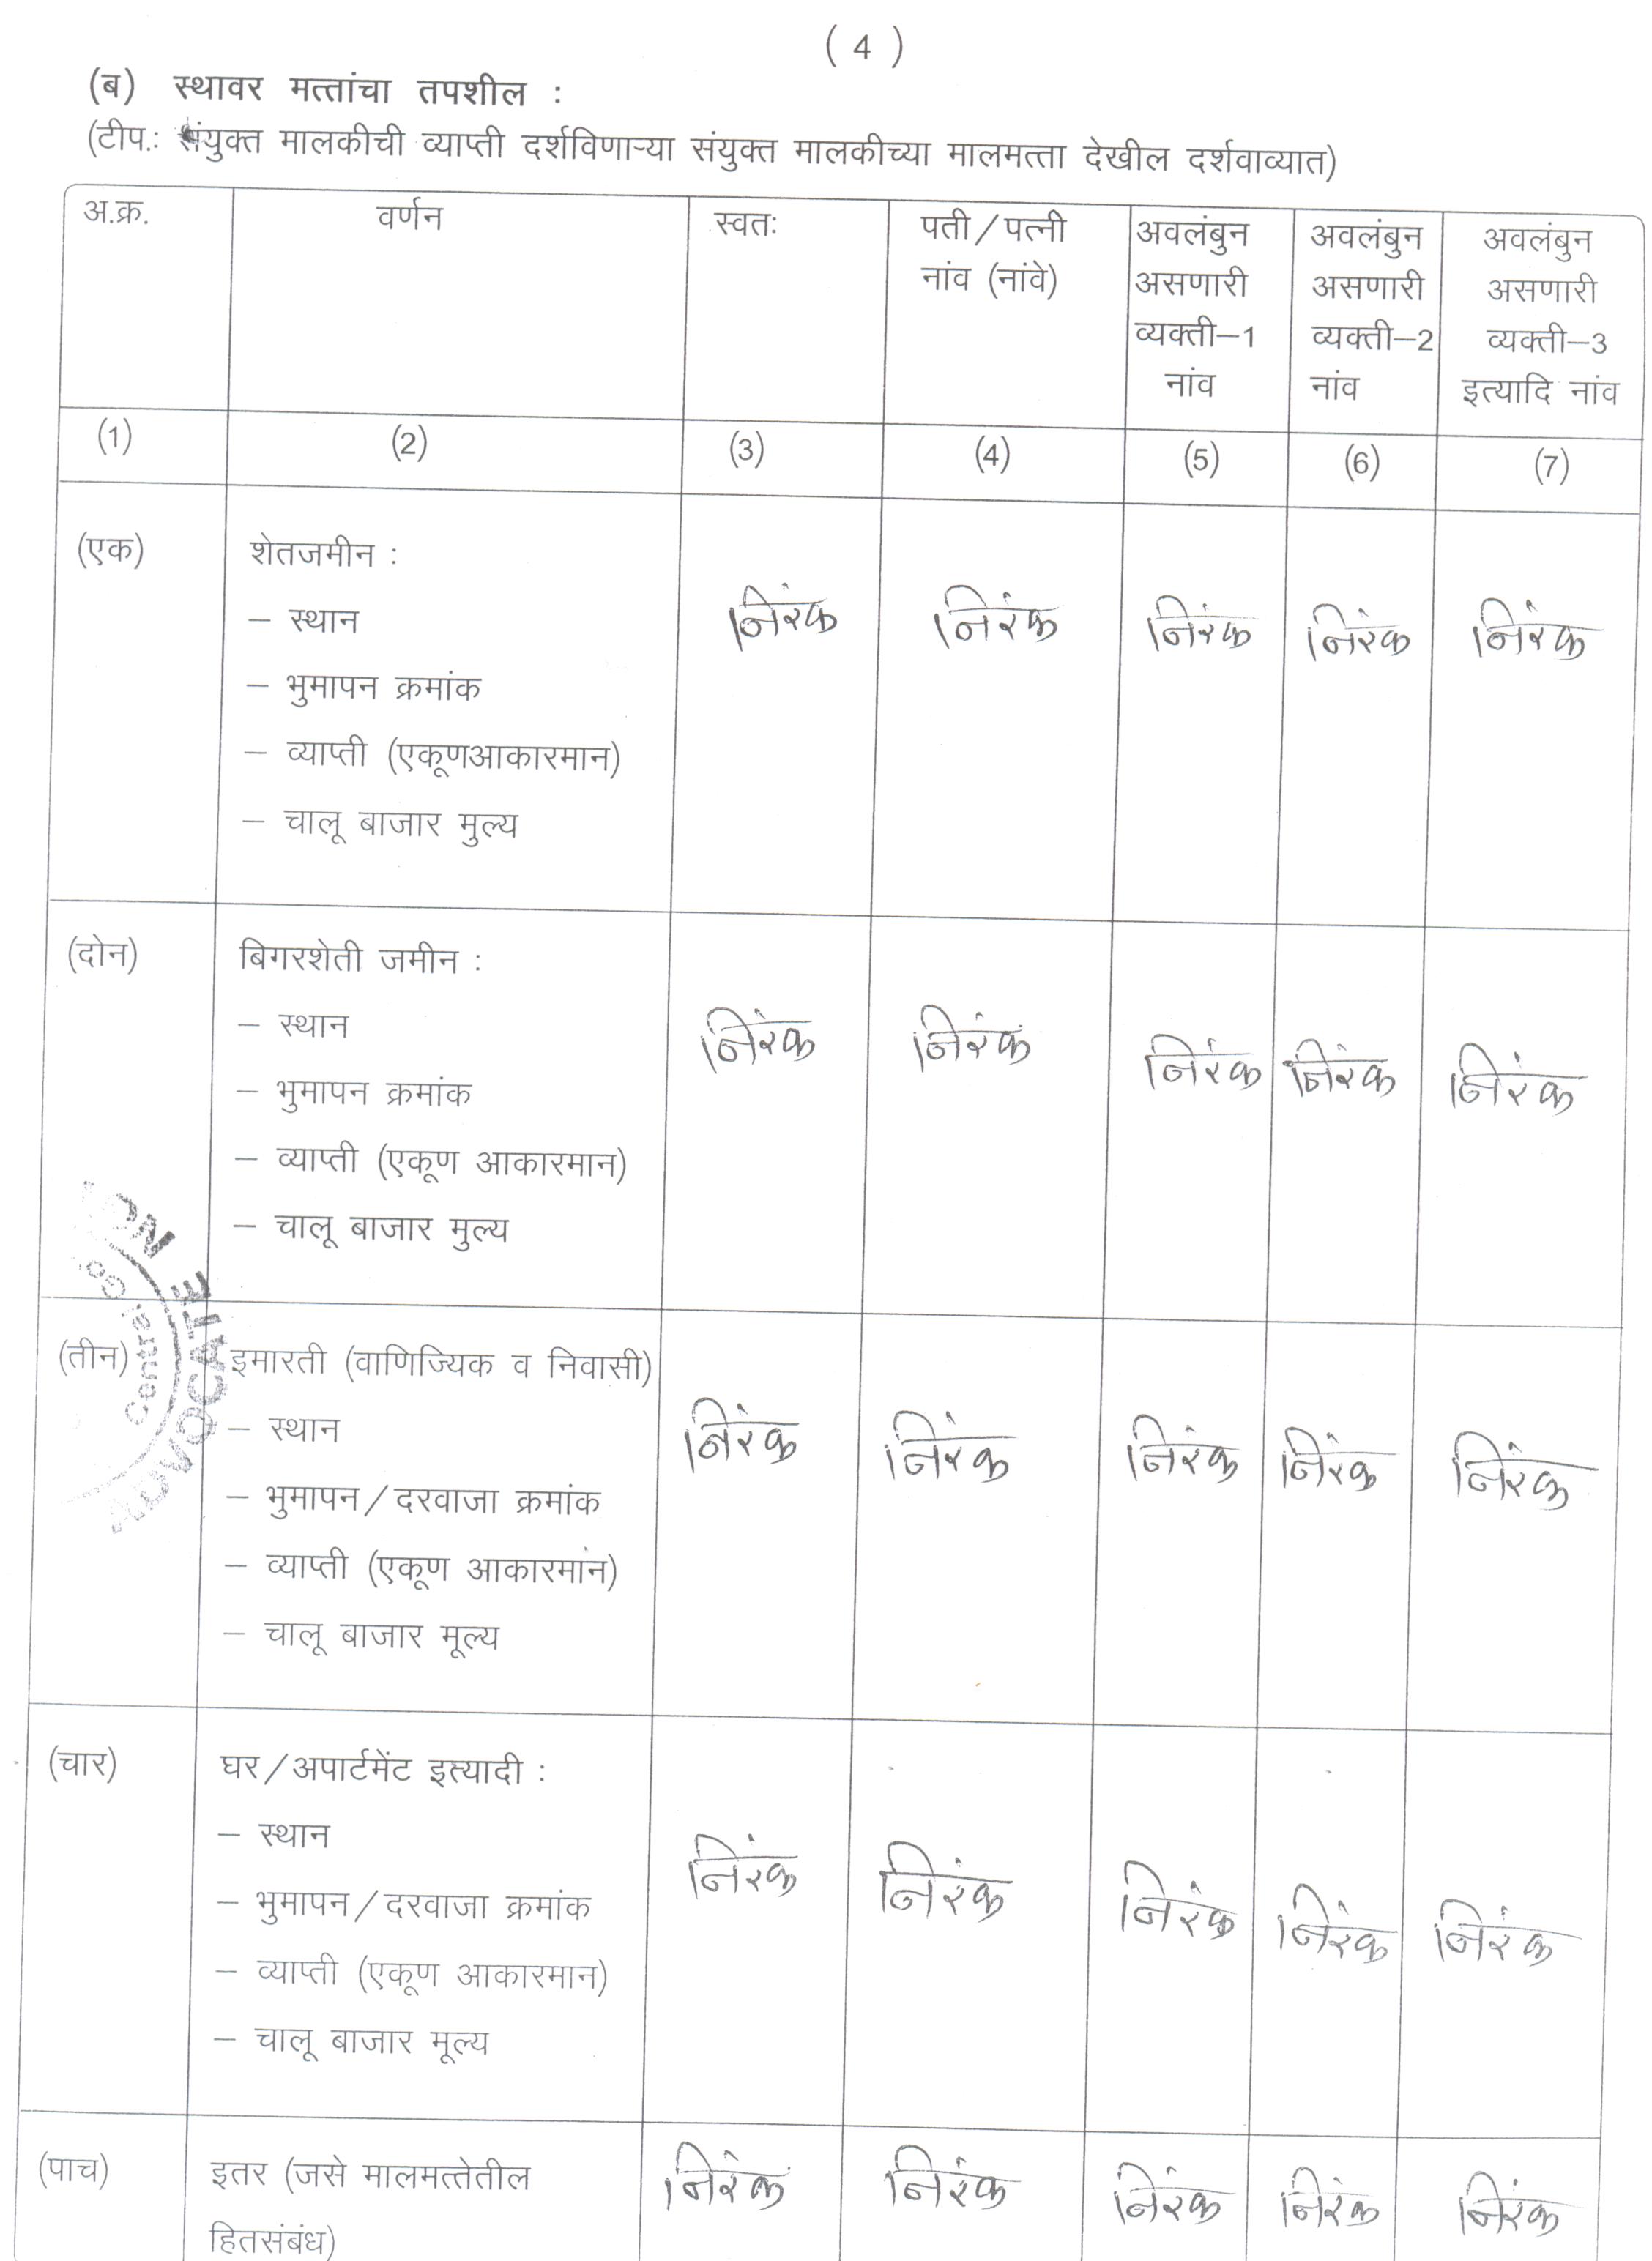 ( 4 )
(ब) स्थावर मत्तांचा तपशील :
(टीप.: संयुक्त मालकीची व्याप्ती दर्शविणाऱ्या संयुक्त मालकीच्या मालमत्ता देखील दर्शवाव्यात)
अ.क्र. वर्णन स्वतः पती/पत्नी अवलंबुन अवलंबुन अवलंबुन
नांव (नांवे) असणारी असणारी असणारी
व्यक्ती–1 व्यक्ती–2 व्यक्ती–3
नांव नांव इत्यादि नांव
(1) (2) (3) (4) (5) (6) (7)
(एक) शेतजमीन :
– स्थान निरंक निरंक निरंक निरंक निरंक
– भुमापन क्रमांक
– व्याप्ती (एकूणआकारमान)
– चालू बाजार मुल्य
(दोन) बिगरशेती जमीन :
– स्थान निरंक निरंक निरंक निरंक निरंक
– भुमापन क्रमांक
– व्याप्ती (एकूण आकारमान)
– चालू बाजार मुल्य
(तीन) इमारती (वाणिज्यिक व निवासी)
– स्थान निरंक निरंक निरंक निरंक निरंक
– भुमापन/दरवाजा क्रमांक
– व्याप्ती (एकूण आकारमान)
– चालू बाजार मूल्य
ADVOCATE
(चार) घर/अपार्टमेंट इत्यादी :
– स्थान निरंक निरंक निरंक निरंक निरंक
– भुमापन/दरवाजा क्रमांक
– व्याप्ती (एकूण आकारमान)
– चालू बाजार मूल्य
(पाच) इतर (जसे मालमत्तेतील निरंक निरंक निरंक निरंक निरंक
हितसंबंध)